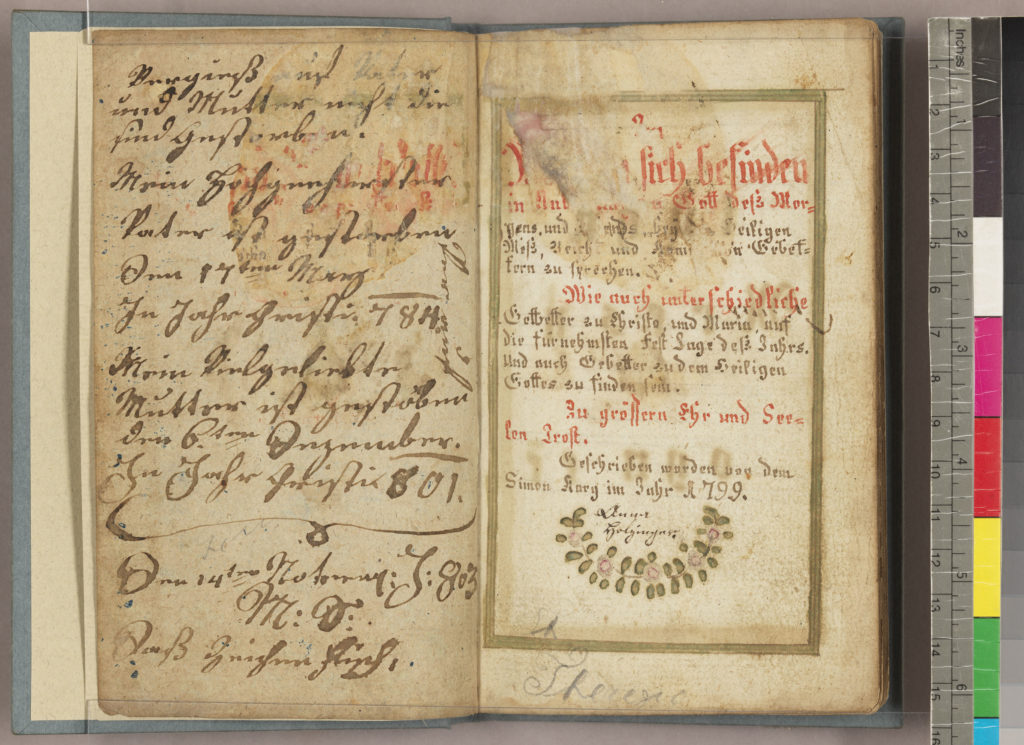 Vergieß auf Vater
und Mutter nicht die
sind Gestorben.
Mein Hochgeehrtester
Vater ist gestorben
Den 17ten Marz
In Jahr Christi. 784
Mein Vielgeliebte
Mutter ist gestöben
den 6.ten Dezember.
In Jahr Christi 801.
Den 14ten J: 803
M: S:
Daß Zeichen
In
sich befinden
in Gott deß Mor-
gens, und Heiligen
Meß, Beicht und Gebet-
tern zu sprechen.
Wie auch unterschiedliche
Getbetter zu Christo, und Maria, auf
die fürnehmsten Fest Tage deß Jahrs.
Und auch Gebetter zu dem Heiligen
Gottes zu finden sein.
Zu grössern Ehr und See-
len Trost.
Geschrieben worden von dem
Simon Karg im Jahr A 1799.
Anna
Holzinger
Therese
Inches
1
2
3
4
5
6
7
8
9
10
11
12
13
14
15
16
2
3
4
5
6